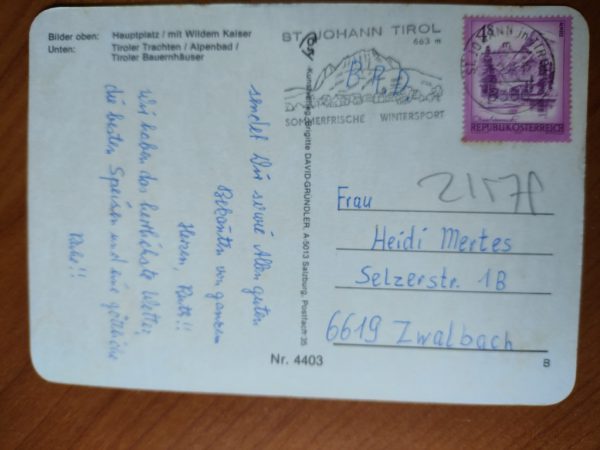 Bilder oben: Hauptplatz / mit Wildem Kaiser
Unten: Tiroler Trachten / Alpenbad /
Tiroler Bauernhäuser
sendet Dir sowie Allen guten
Bekannten von ganzem
Herzen, Ruth!!
Wir haben das herrlichste Wetter,
die besten Speisen und eine göttliche
Ruhe!!
Kunstverlag Brigitte DAVID-GRÜNDLER, A 5013 Salzburg, Postfach 35
ST. JOHANN TIROL
663 m
B.R.D.
SOMMERFRISCHE WINTERSPORT
ST. JOHANN IN TIROL
REPUBLIK ÖSTERREICH
Frau
Heidi Mertes
Selzerstr. 1B
6619 Zwalbach
Nr. 4403